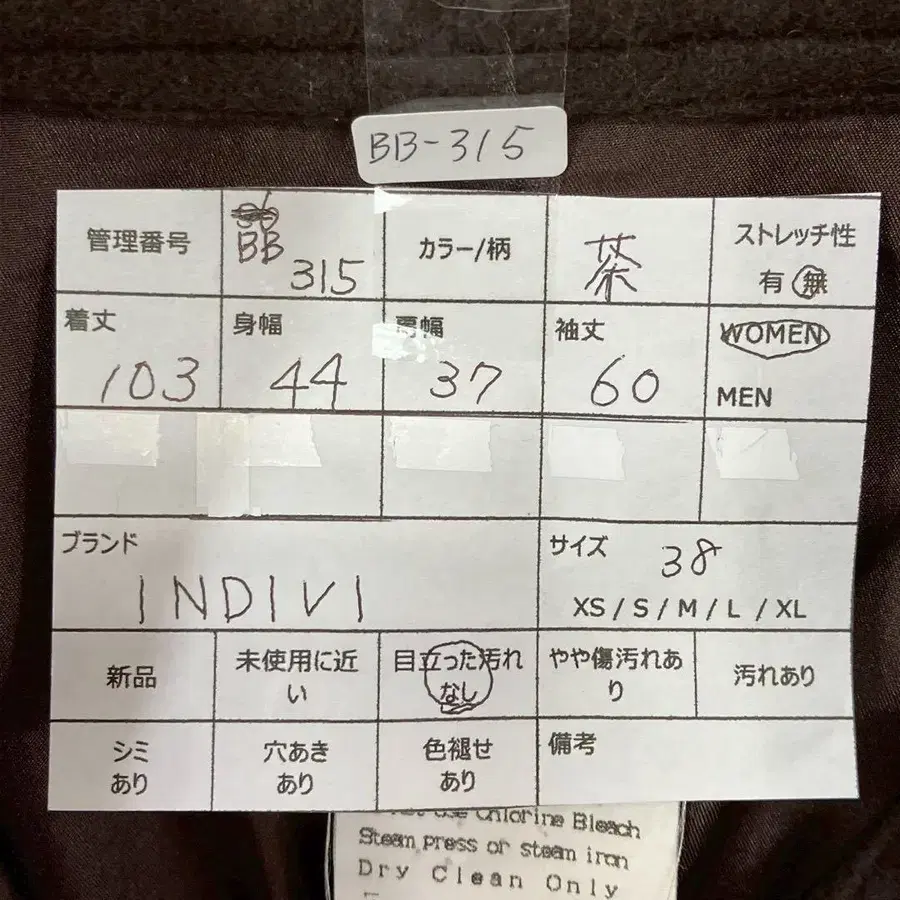 BB-315
管理番号
BB
315
カラー/柄
茶
ストレッチ性
有 無
着丈
103
身幅
44
肩幅
37
袖丈
60
WOMEN
MEN
ブランド
INDIVI
サイズ
38
XS / S / M / L / XL
新品
未使用に近
い
目立った汚れ
なし
やや傷汚れあ
り
汚れあり
シミ
あり
穴あき
あり
色褪せ
あり
備考
use Chlorine Bleach
Steam press or steam iron
Dry Clean Only